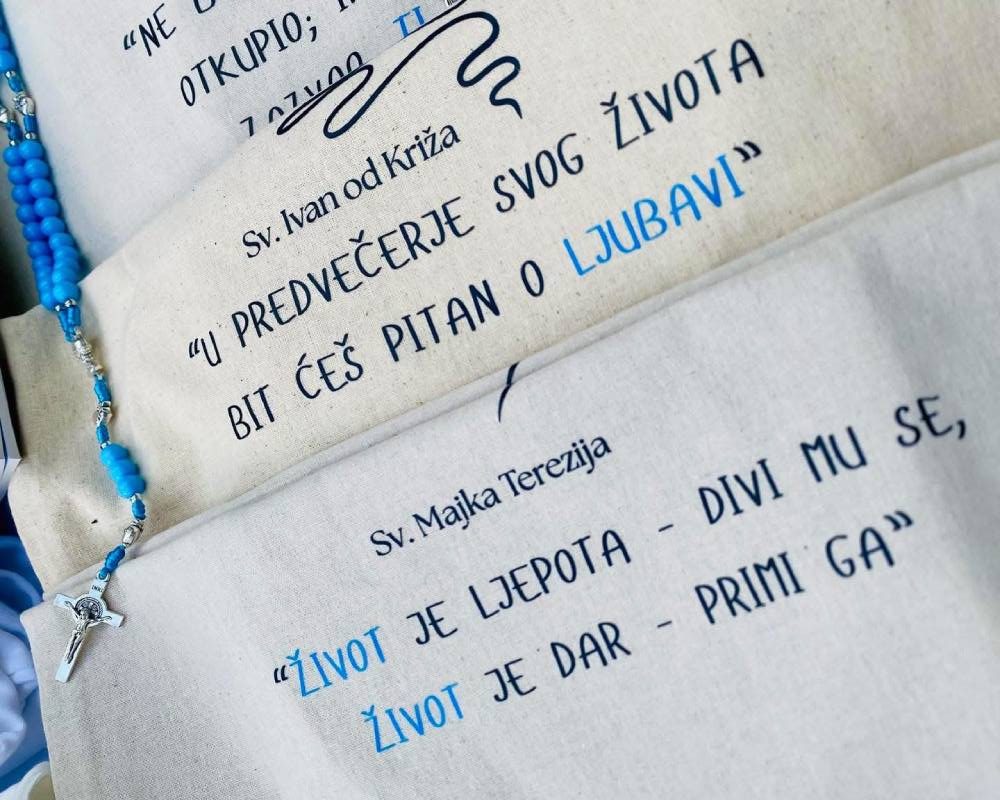 “NE
OTKUPIO;
TI
Sv. Ivan od Križa
“U PREDVEČERJE SVOG ŽIVOTA
BIT ĆEŠ PITAN O LJUBAVI”
Sv. Majka Terezija
“ŽIVOT JE LJEPOTA - DIVI MU SE,
ŽIVOT JE DAR - PRIMI GA”